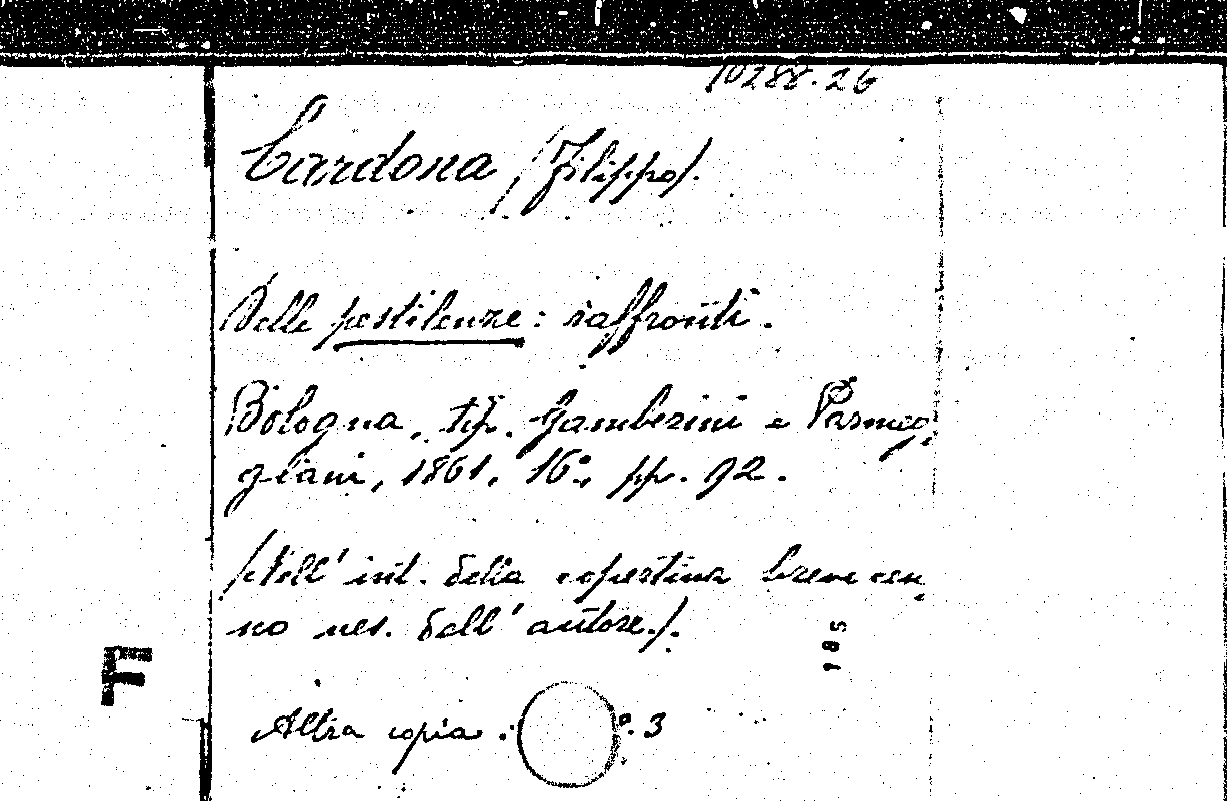 10288.26
Cardona /Filippo/.
Delle pestilenze: raffronti.
Bologna, tip. Gamberini e Parmeg-
giani, 1861, 16°, pp. 92.
/Nell' int. della copertina breve cen-
no nec. dell' autore./.
185
F
Altra copia : . 3